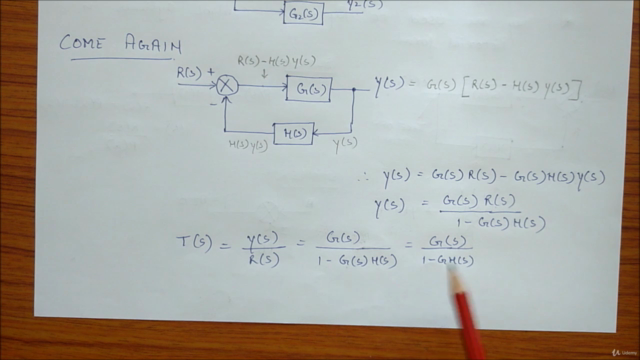 G₂(s) Y₂(s)
COME AGAIN
R(s) - H(s) Y(s)
R(s) + G(s) Y(s) = G(s) [R(s) - H(s) Y(s)]
-
H(s) Y(s) H(s) Y(s)
∴ Y(s) = G(s) R(s) - G(s) H(s) Y(s)
Y(s) = G(s) R(s) / 1 - G(s) H(s)
T(s) = Y(s) / R(s) = G(s) / 1 - G(s) H(s) = G(s) / 1 - GH(s)
Udemy